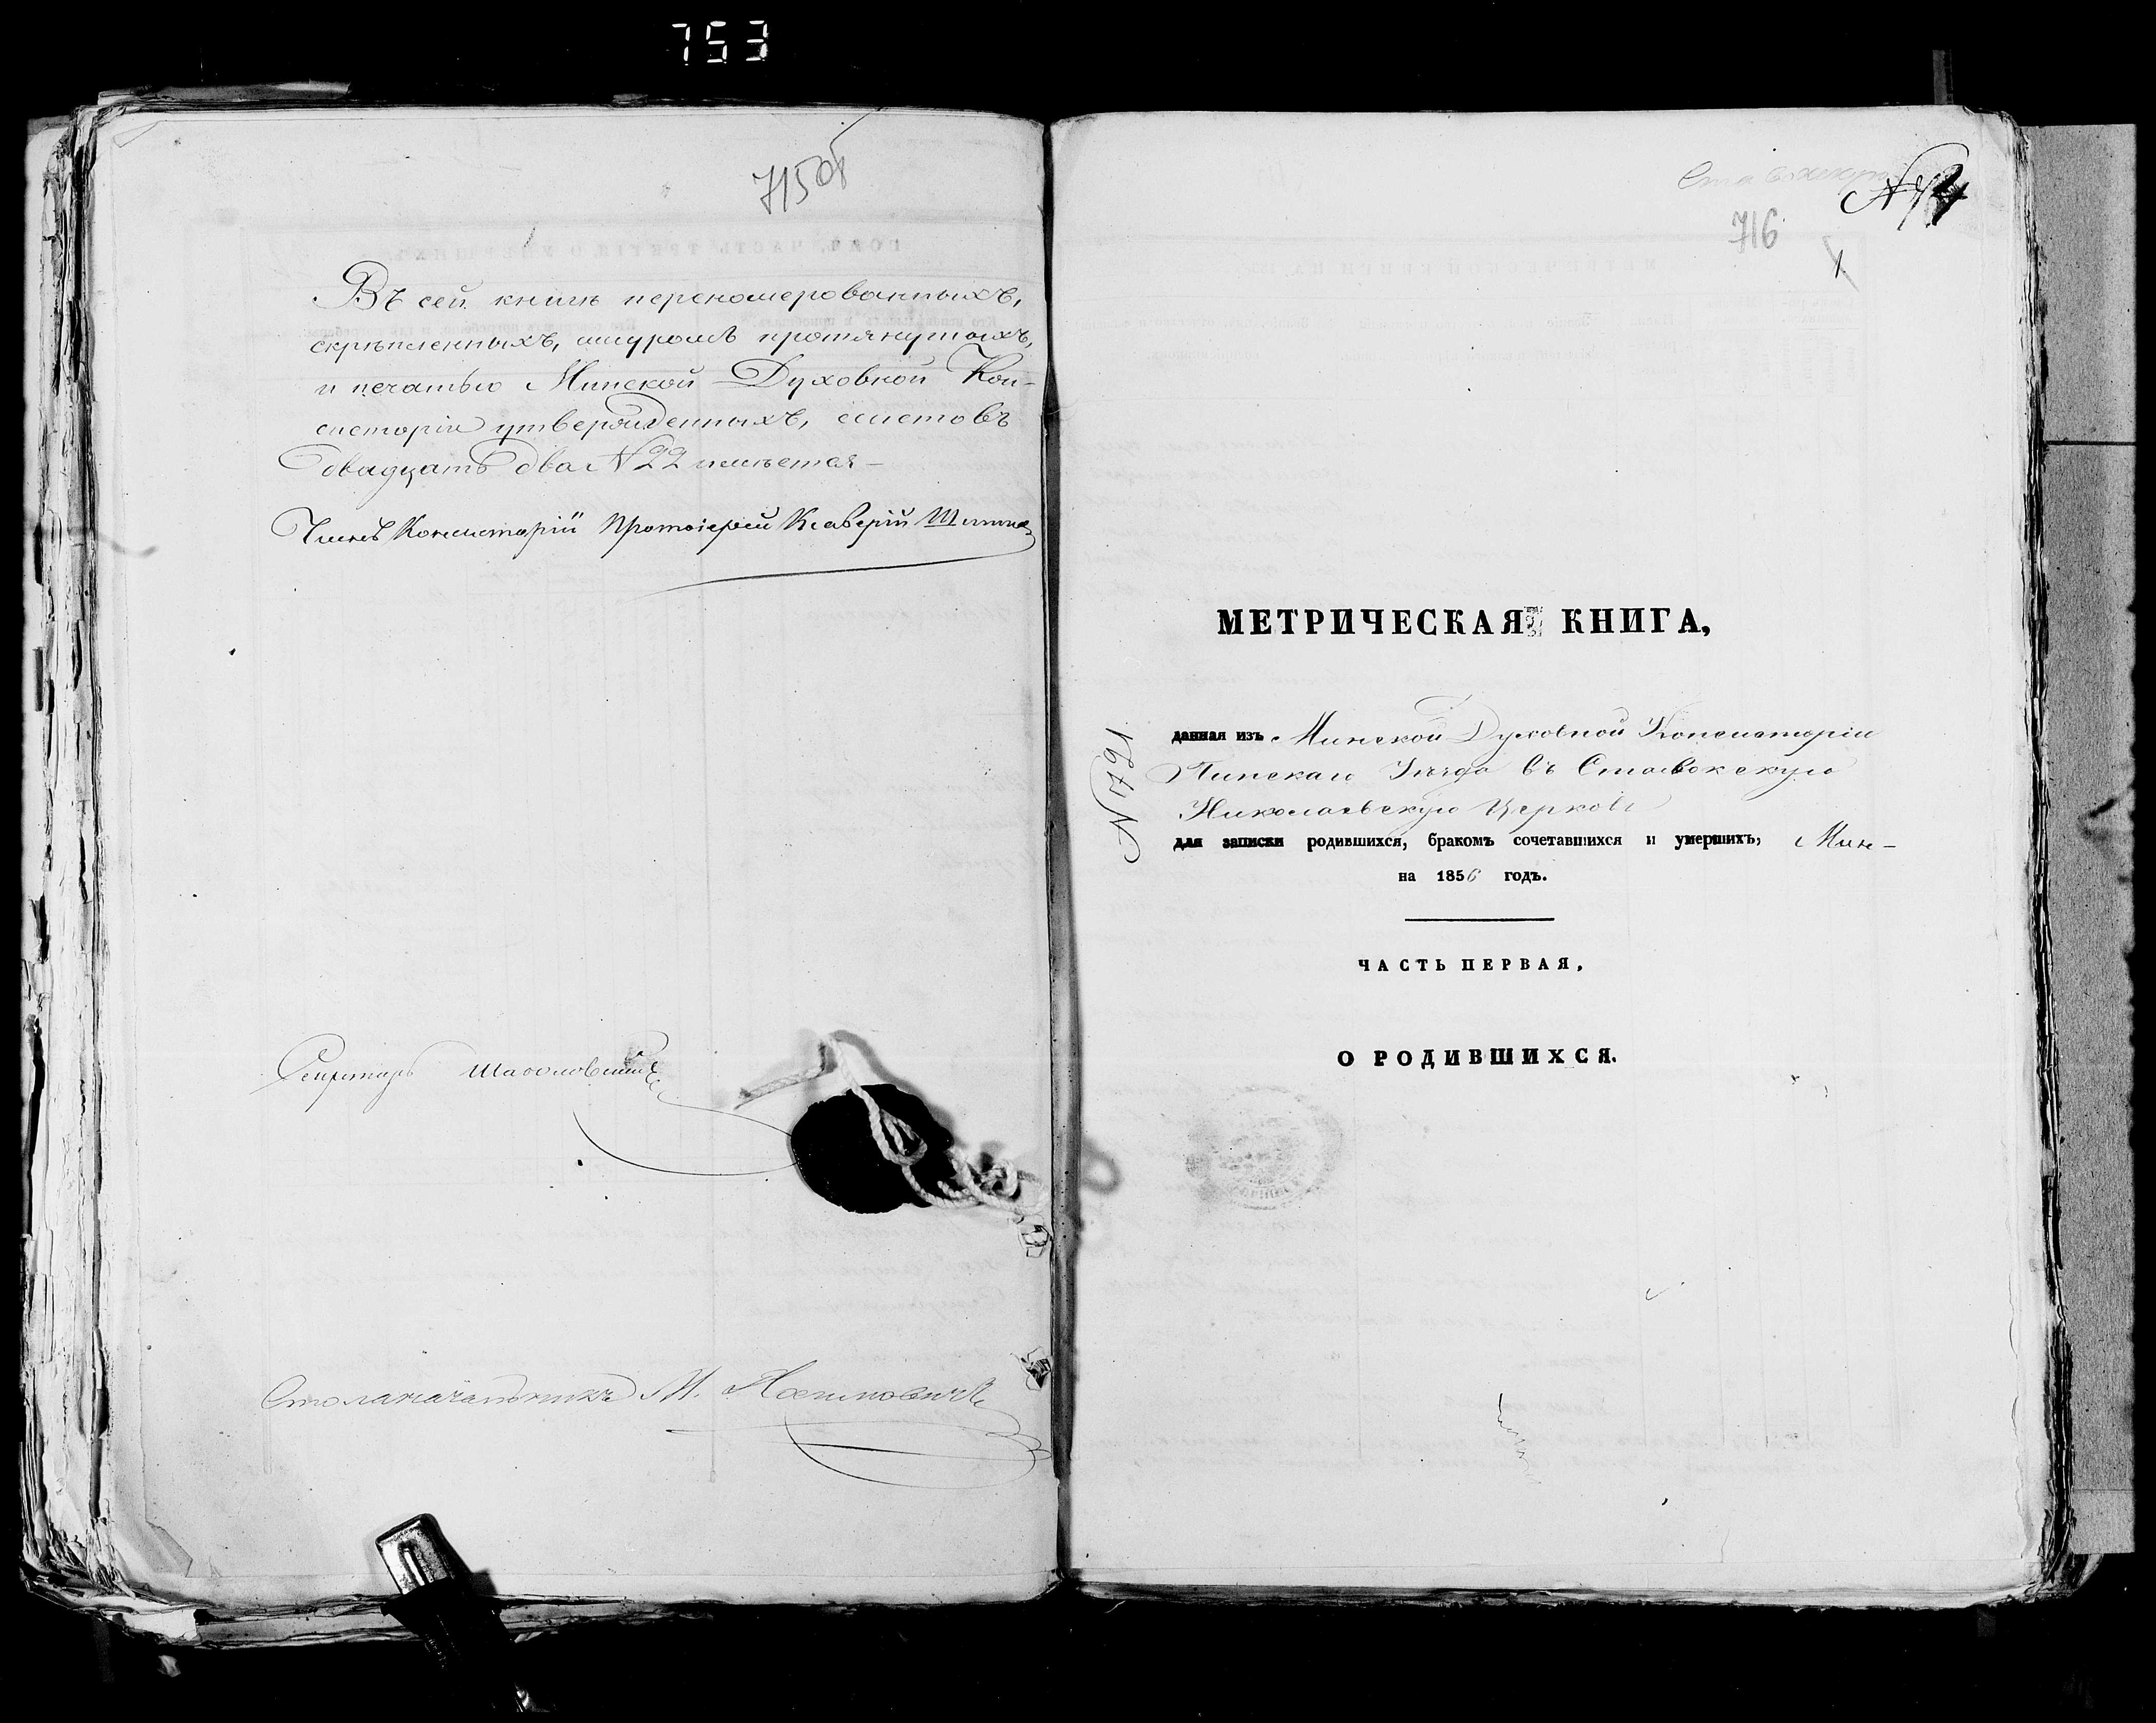 753
715об
Въ сей книгѣ переномерованныхъ,
скрѣпленныхъ, шнуромъ протянутыхъ,
и печатью Минской Духовной Кон-
систоріи утвержденныхъ, листовъ
двадцать два N 22 имѣется—
Членъ Консисторіи Протоіерей Ксаверій
Секретарь
Столоначальникъ М.
716
1
МЕТРИЧЕСКАЯ КНИГА,
данная изъ Минской Духовной Консисторіи
Пинскаго Уѣзда въ Ставокскую
Николаевскую Церковь
для записки родившихся, бракомъ сочетавшихся и умершихъ,
на 1856 годъ.
ЧАСТЬ ПЕРВАЯ,
О РОДИВШИХСЯ.